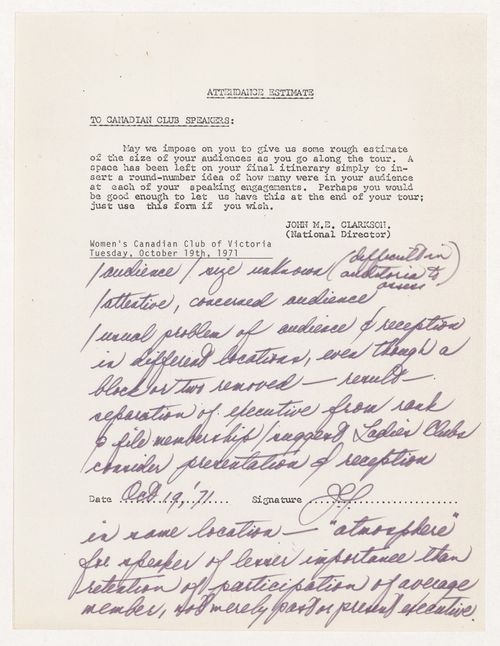 ATTENDANCE ESTIMATE
TO CANADIAN CLUB SPEAKERS:
May we impose on you to give us some rough estimate
of the size of your audiences as you go along the tour. A
space has been left on your final itinerary simply to in-
sert a round-number idea of how many were in your audience
at each of your speaking engagements. Perhaps you would
be good enough to let us have this at the end of your tour;
just use this form if you wish.
JOHN M.E. CLARKSON.
(National Director)
Women's Canadian Club of Victoria
Tuesday, October 19th, 1971
/audience/ size unknown (difficult in
auditoria to
assess)
/attentive, concerned audience
/usual problem of audience & reception
in different locations, even though a
block or two removed — result —
separation of executive from rank
& file membership/suggest Ladies Clubs
/consider presentation & reception
Date Oct 19, '71 Signature
in same location — "atmosphere"
for speaker of lesser importance than
retention of participation of average
member, not merely past or present executive.